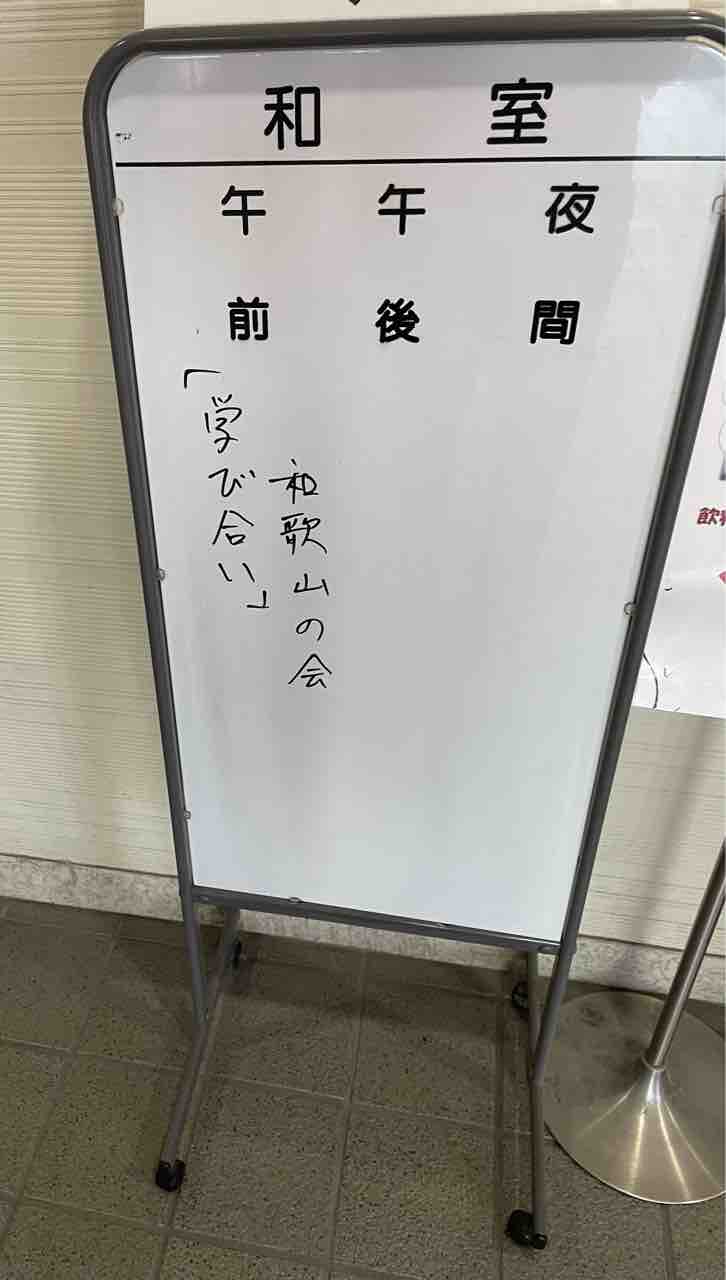 和室
午前
午後
夜間
「学び合い」
和歌山の会
飲